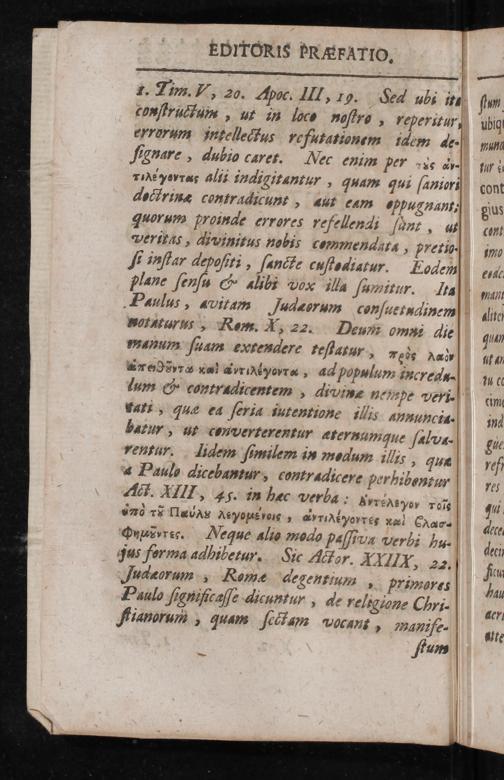 EDITORIS PRÆFATIO.
1. Tim. V, 20. Apoc. III, 19. Sed ubi ita
constructum, ut in loco nostro, reperitur,
errorum intellectus refutationem idem de-
signare, dubio caret. Nec enim per τȣ̀ς ἀν-
τιλέγοντας alii indigitantur, quam qui saniori
doctrinæ contradicunt, aut eam oppugnant;
quorum proinde errores refellendi sunt, ut
veritas, divinitus nobis commendata, pretio-
si instar depositi, sancte custodiatur. Eodem
plane sensu & alibi vox illa sumitur. Ita
Paulus, avitam Judæorum consuetudinem
notaturus, Rom. X, 22. Deum omni die
manum suam extendere testatur, πρὸς λαὸν
ἀπειθȣ͂ντα καὶ ἀντιλέγοντα, ad populum incredu-
lum & contradicentem, divinæ nempe veri-
tati, quæ ea seria iutentione illis annuncia-
batur, ut converterentur æternumque salva-
rentur. Iidem similem in modum illis, quæ
a Paulo dicebantur, contradicere perhibentur
Act. XIII, 45. in hæc verba: ἀντέλεγον τοῖς
ὑπὸ τȣ͂ Παύλȣ λεγομένοις, ἀντιλέγοντες καὶ βλασ-
φημȣ͂ντες. Neque alio modo passiva verbi hu-
jus forma adhibetur. Sic Actor. XXIIX, 22.
Judæorum, Romæ degentium, primores
Paulo significasse dicuntur, de religione Chri-
stianorum, quam sectam vocant, manife-
stum